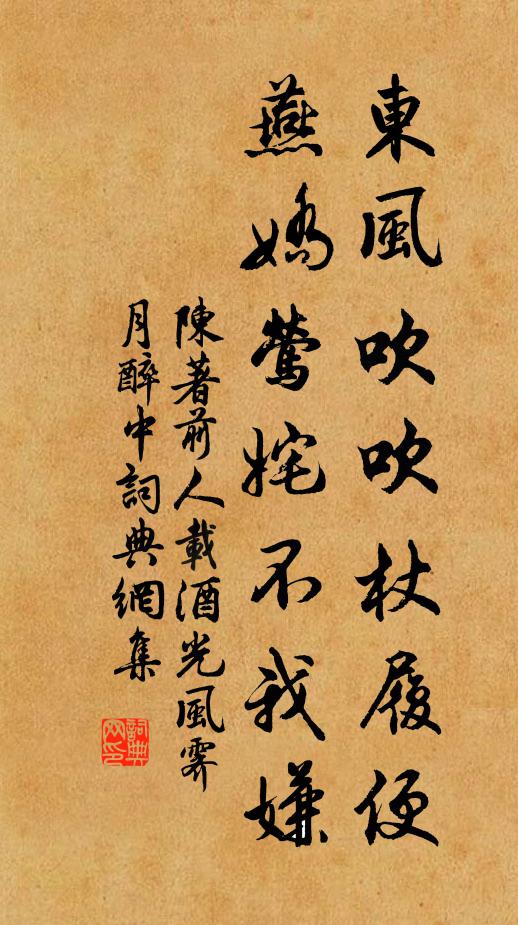 東風吹吹杖履便
燕嬌鶯姹不我嫌
陳著前人載酒光風霽
月醉中詞典網集
詞典網印